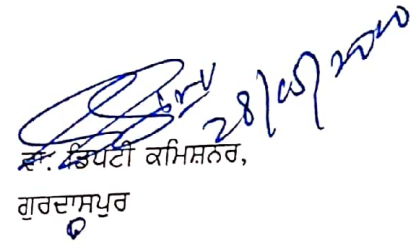 28/05/2020
ਵਾ: ਡਿਪਟੀ ਕਮਿਸ਼ਨਰ,
ਗੁਰਦਾਸਪੁਰ